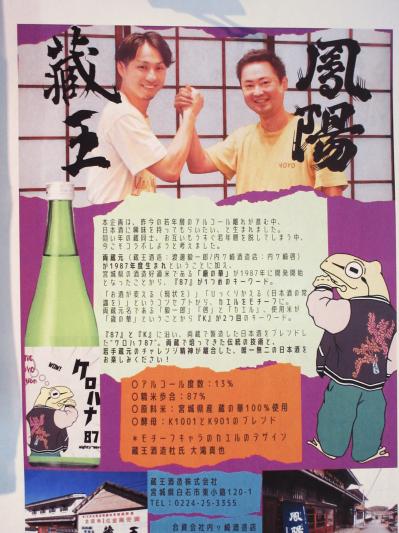 蔵王
鳳陽
本企画は、昨今の若年層のアルコール離れが進む中、
日本酒に興味を持ってもらいたい、と生まれました。
同い年の蔵同士、お互いもうすぐ若年層を脱してしまう中、
今こそコラボしようと考えました。
両蔵元（蔵王酒造：渡邊毅一郎/内ヶ崎酒造店：内ヶ崎啓）
が1987年度生まれということに加え、
宮城県の酒造好適米である「蔵の華」が1987年に開発開始
となったことから、『87』が1つ目のキーワード。
「お酒が変える（現状を）」「ひっくりかえる（日本酒の常
識を）」というコンセプトから、カエルをモチーフに。
両蔵元名である「毅一郎」「啓」と「カエル」、使用米が
「蔵の華」であることから『K』が2つ目のキーワード。
『87』と『K』に沿い、両蔵で製造した日本酒をブレンドし
た"ケロハナ87"。両蔵で培ってきた伝統の技術と、
若手蔵元のチャレンジ精神が融合した、唯一無二の日本酒を
お楽しみください！
○アルコール度数：13%
○精米歩合：87%
○原料米：宮城県産 蔵の華100%使用
○酵母：K1001とK901のブレンド
＊モチーフキャラのカエルのデザイン
蔵王酒造杜氏 大滝真也
WOW!
ケロハナ
87
蔵王酒造株式会社
宮城県白石市東小路120-1
TEL：0224-25-3355
合資会社内ヶ崎酒造店
蔵王
鳳陽